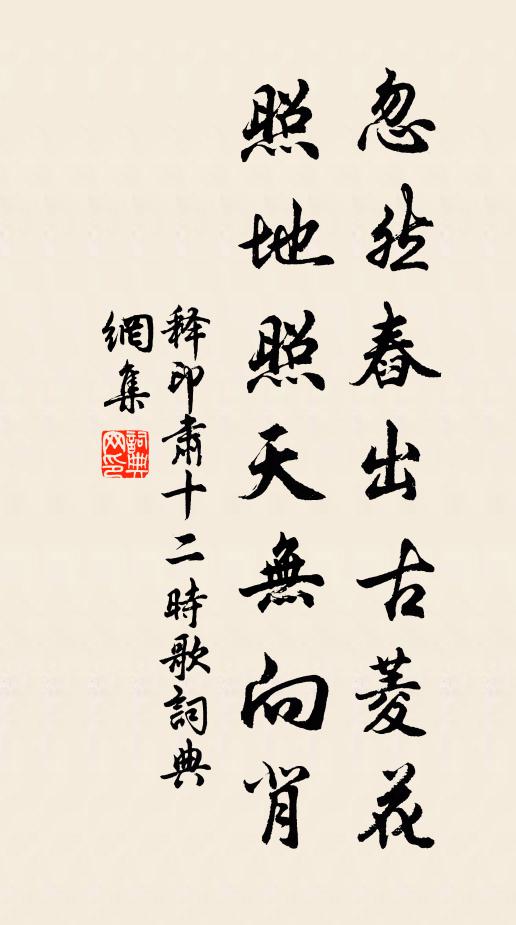 忽然舂出古菱花
照地照天無向背
释印肅十二時歌詞典
網集
詞典
网印